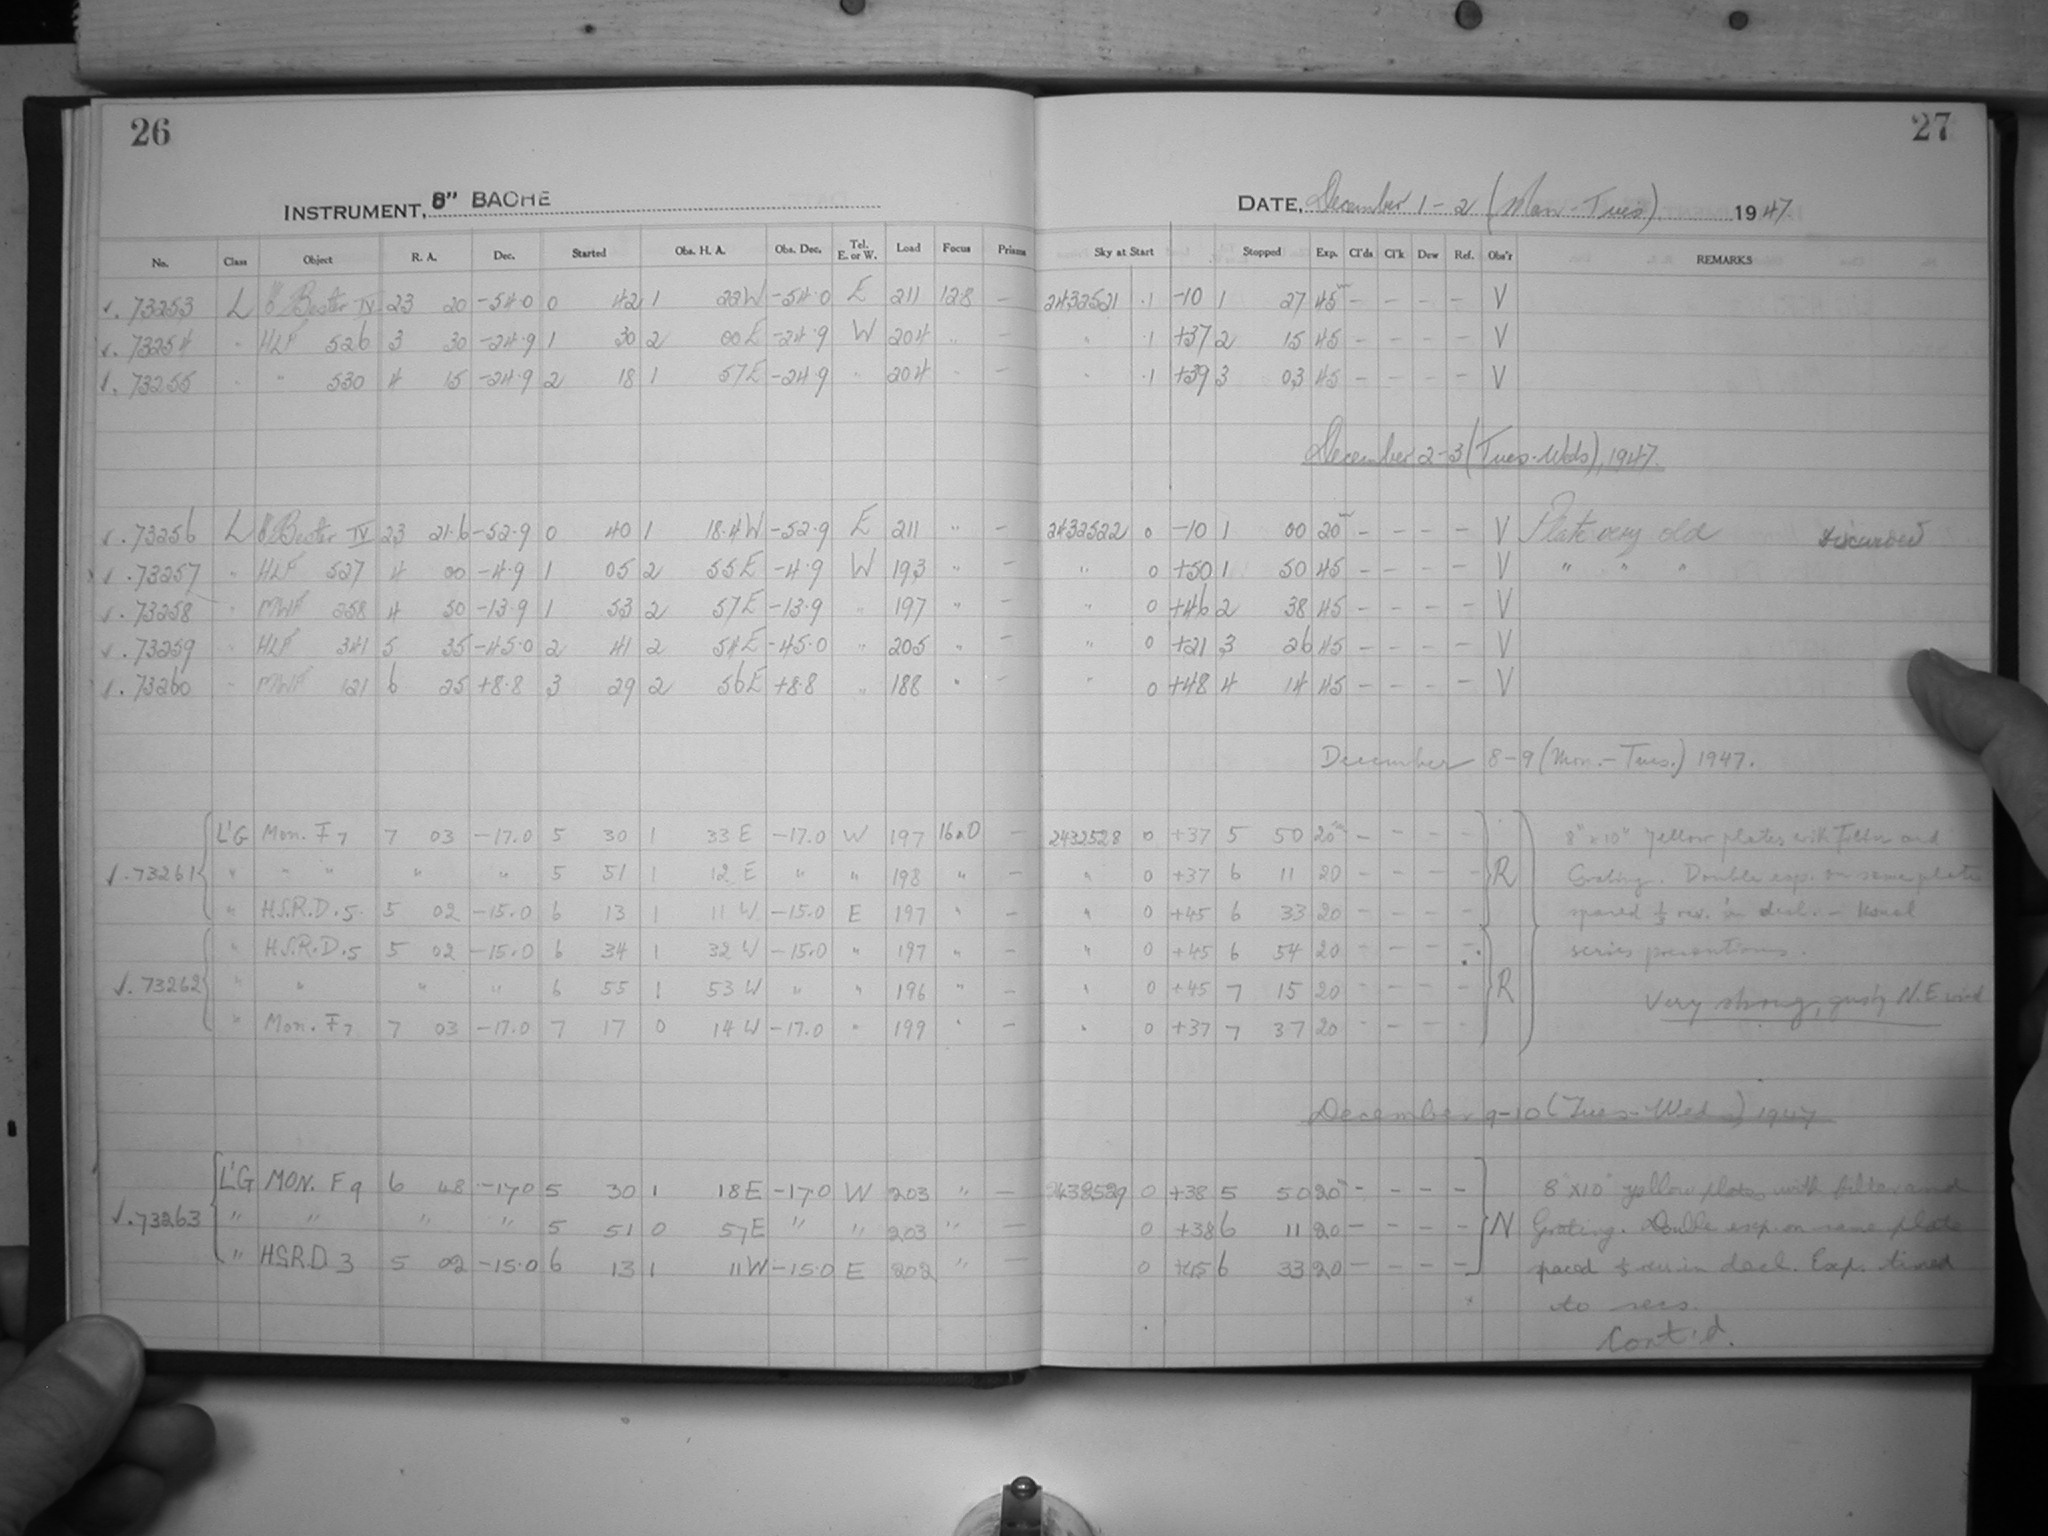 26
27
INSTRUMENT, 8" BACHE
DATE, December 1-2 (Mon-Tues) 1947.
No. Class Object R. A. Dec. Started Obs. H. A. Obs. Dec. Tel. E. or W. Load Focus Prisms Sky at Start Stopped Exp. Cl'ds Cl'k Dew Ref. Obs'r REMARKS
√. 73253 L Bester IV 23 20 -54.0 0 42 1 22W -54.0 E 211 12.8 - 2432521 .1 -10 1 27 45m - - - - V
√. 73254 " HLF 526 3 30 -24.9 1 30 2 00E -24.9 W 204 " - " .1 +37 2 15 45 - - - - V
√. 73255 " " 530 4 15 -24.9 2 18 1 57E -24.9 " 204 - " .1 +39 3 03 45 - - - - V
December 2-3 (Tues-Weds), 1947.
√. 73256 L Bester IV 23 21.6 -52.9 0 40 1 18.4W -52.9 E 211 " - 2432522 0 -10 1 00 20m - - - - V Plate very old Discarded
√. 73257 " HLF 527 4 00 -4.9 1 05 2 55E -4.9 W 193 " - " 0 +50 1 50 45 - - - - V " " "
√. 73258 " MWF 258 4 50 -13.9 1 53 2 57E -13.9 " 197 " - " 0 +46 2 38 45 - - - - V
√. 73259 " HLF 341 5 35 -45.0 2 41 2 54E -45.0 " 205 " - " 0 +21 3 26 45 - - - - V
√. 73260 " MWF 121 6 25 +8.8 3 29 2 56E +8.8 " 188 " - " 0 +48 4 14 45 - - - - V
December 8-9 (Mon.-Tues.) 1947.
L'G Mon. F7 7 03 -17.0 5 30 1 33 E -17.0 W 197 16.0 - 2432528 0 +37 5 50 20m - - - - 8" x 10" Yellow plates with filter and
√. 73261 " " " " " 5 51 1 12 E " " 198 " - " 0 +37 6 11 20 - - - - R Grating. Double exp. on same plate
" H.S.R.D. 5 5 02 -15.0 6 13 1 11 W -15.0 E 197 " - " 0 +45 6 33 20 - - - - spaced ½ rev. in decl. - Usual
" H.S.R.D. 5 5 02 -15.0 6 34 1 32 W -15.0 " 197 " - " 0 +45 6 54 20 - - - - series precautions.
√. 73262 " " " " 6 55 1 53 W " " 196 " - " 0 +45 7 15 20 - - - - R Very strong, gusty N.E wind
" Mon. F7 7 03 -17.0 7 17 0 14 W -17.0 " 199 " - " 0 +37 7 37 20 - - - -
December 9-10 (Tues-Weds) 1947
L'G MON. F 9 6 48 -17.0 5 30 1 18E -17.0 W 203 " - 2432529 0 +38 5 50 20m - - - - 8" x 10" yellow plates with filter and
√. 73263 " " " " 5 51 0 57E " " 203 " - 0 +38 6 11 20 - - - - N Grating. Double exp. on same plate
" H.S.R.D 3 5 02 -15.0 6 13 1 11W -15.0 E 202 " - 0 +45 6 33 20 - - - - spaced ½ rev in decl. Exp. timed
to secs.
Cont'd.